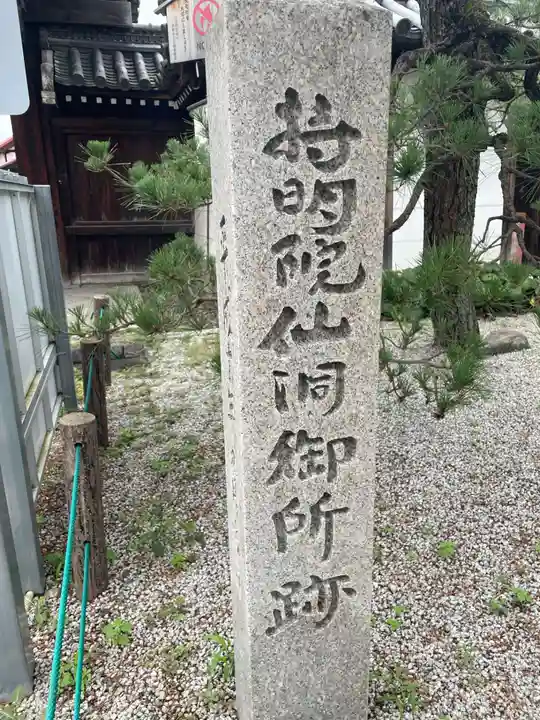 持明院仙洞御所跡